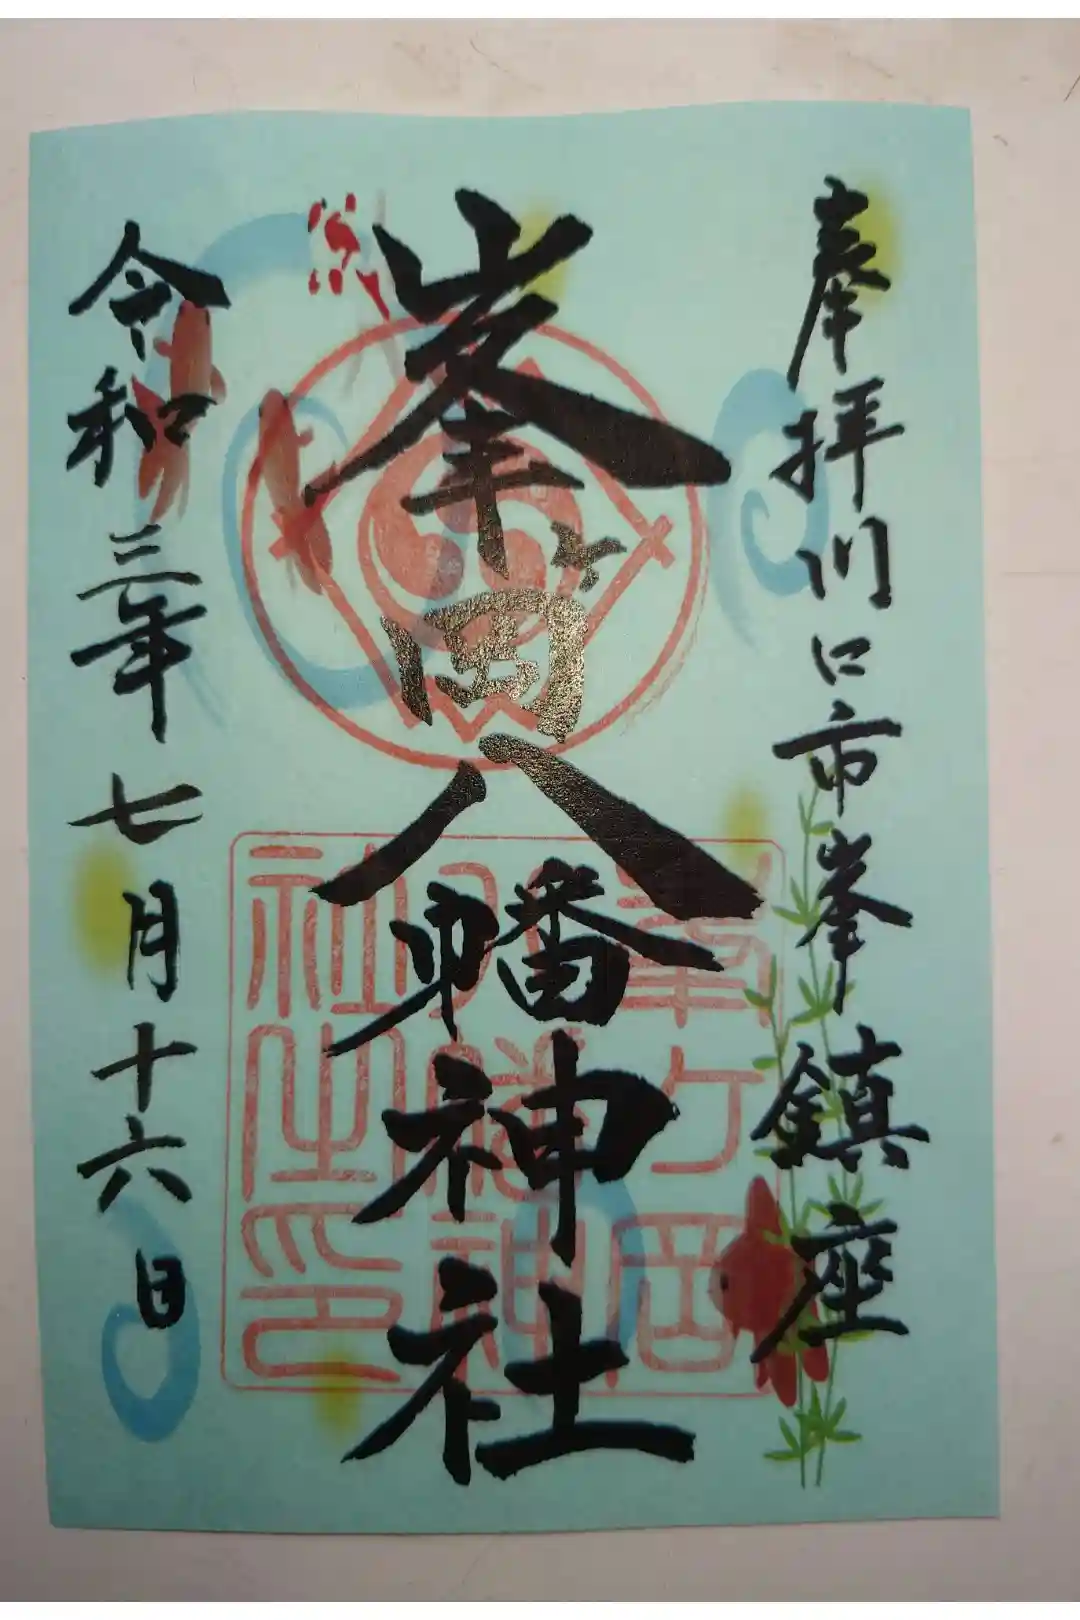 奉拝川口市峯鎮座
峯ヶ岡八幡神社
令和三年七月十六日
峯ヶ岡
八幡神
社之印